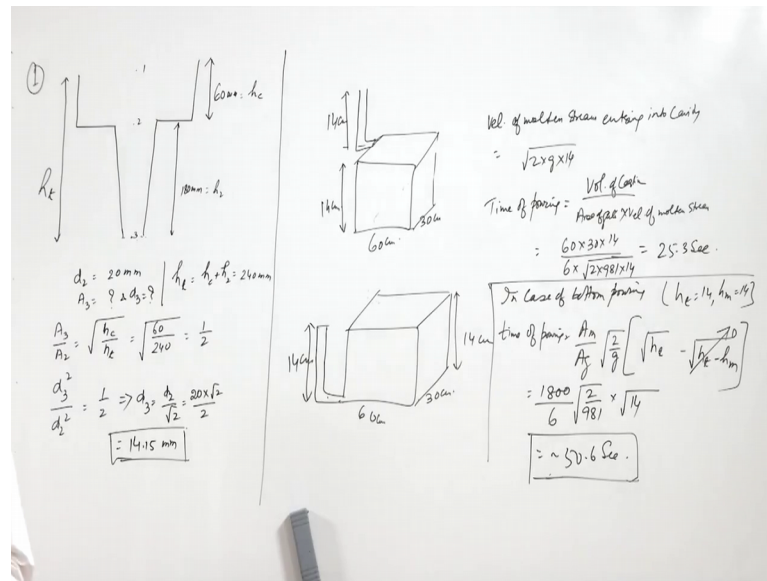 ①
.1
60mm = hc
.2
ht
180mm = h2
.3
d2 = 20mm
A3 = ? & d3 = ?
ht = hc + h2 = 240mm
A3/A2 = √(hc/ht) = √(60/240) = 1/2
d3²/d2² = 1/2 => d3 = d2/√2 = 20×√2/2
= 14.15 mm
14cm
14cm
60cm.
30cm
14cm
14cm
60cm
30cm.
Vel. of molten stream entering into Cavity
= √2×g×14
Time of pouring = Vol. of / Area of × Vel of molten stream
= 60×30×14 / 6×√2×981×14 = 25.3 Sec.
In Case of bottom pouring (ht = 14, hm = 14)
time of pouring = Am/Ag √(2/g) [√ht - √ht - hm] 0
= 1800/6 √(2/981) × √14
= ~50.6 Sec.